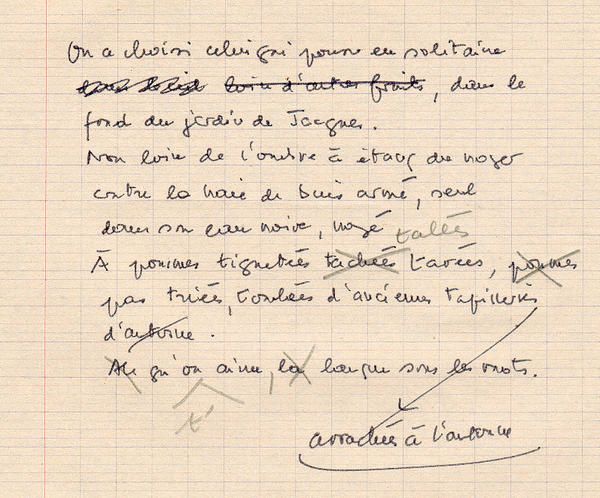 On a choisi celui qui pousse en solitaire
loin d'autres fruits, dans le
fond du jardin de Jacques.
Non loin de l'ombre à étang du noyer
contre la haie de buis armé, seul
dans son eau noire, noyé talés
À pommes tignetées tachées tavées, pommes
pas triées, tombées d'anciennes tapisseries
d'automne.
Ah qu'on aime, la langue sous les mots.
t'
arrachées à l'automne